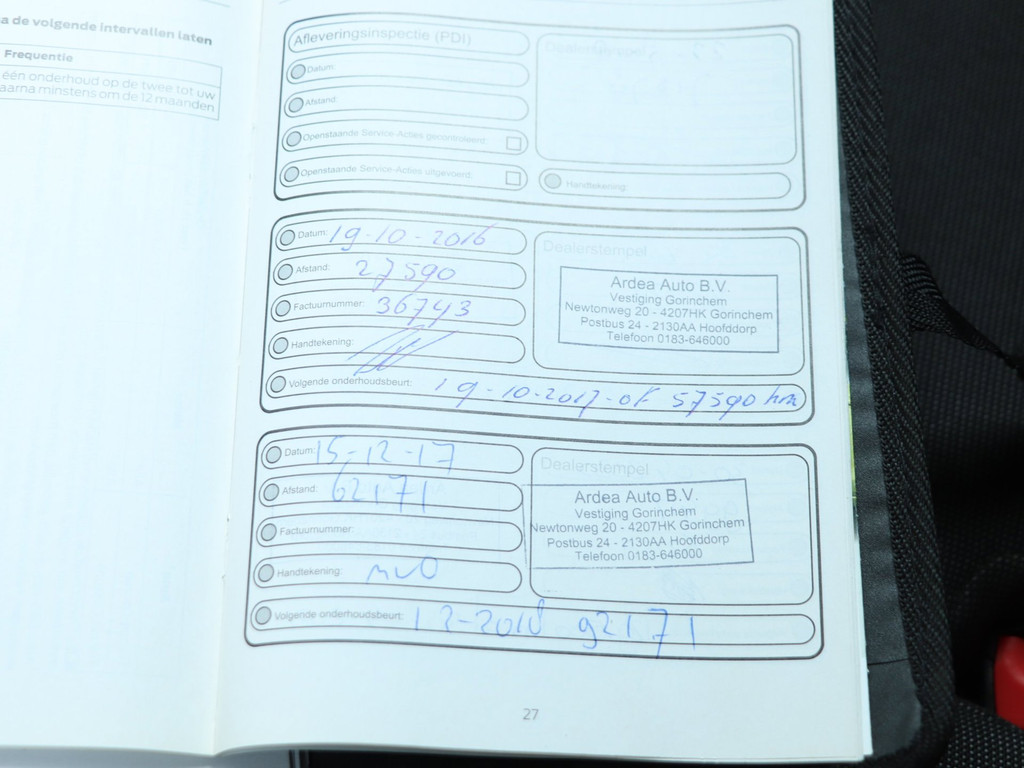 a de volgende intervallen laten
Frequentie
één onderhoud op de twee tot uw
aarna minstens om de 12 maanden
Afleveringsinspectie (PDI)
Datum:
Afstand:
Openstaande Service-Acties gecontroleerd:
Openstaande Service-Acties uitgevoerd:
Dealerstempel
Handtekening:
Datum: 19-10-2016
Afstand: 27590
Factuurnummer: 36743
Handtekening:
Volgende onderhoudsbeurt: 19-10-2017-of 57590 km
Dealerstempel
Ardea Auto B.V.
Vestiging Gorinchem
Newtonweg 20 - 4207HK Gorinchem
Postbus 24 - 2130AA Hoofddorp
Telefoon 0183-646000
Datum: 15-12-17
Afstand: 62171
Factuurnummer:
Handtekening: mvO
Volgende onderhoudsbeurt: 12-2018 92171
Dealerstempel
Ardea Auto B.V.
Vestiging Gorinchem
Newtonweg 20 - 4207HK Gorinchem
Postbus 24 - 2130AA Hoofddorp
Telefoon 0183-646000
27